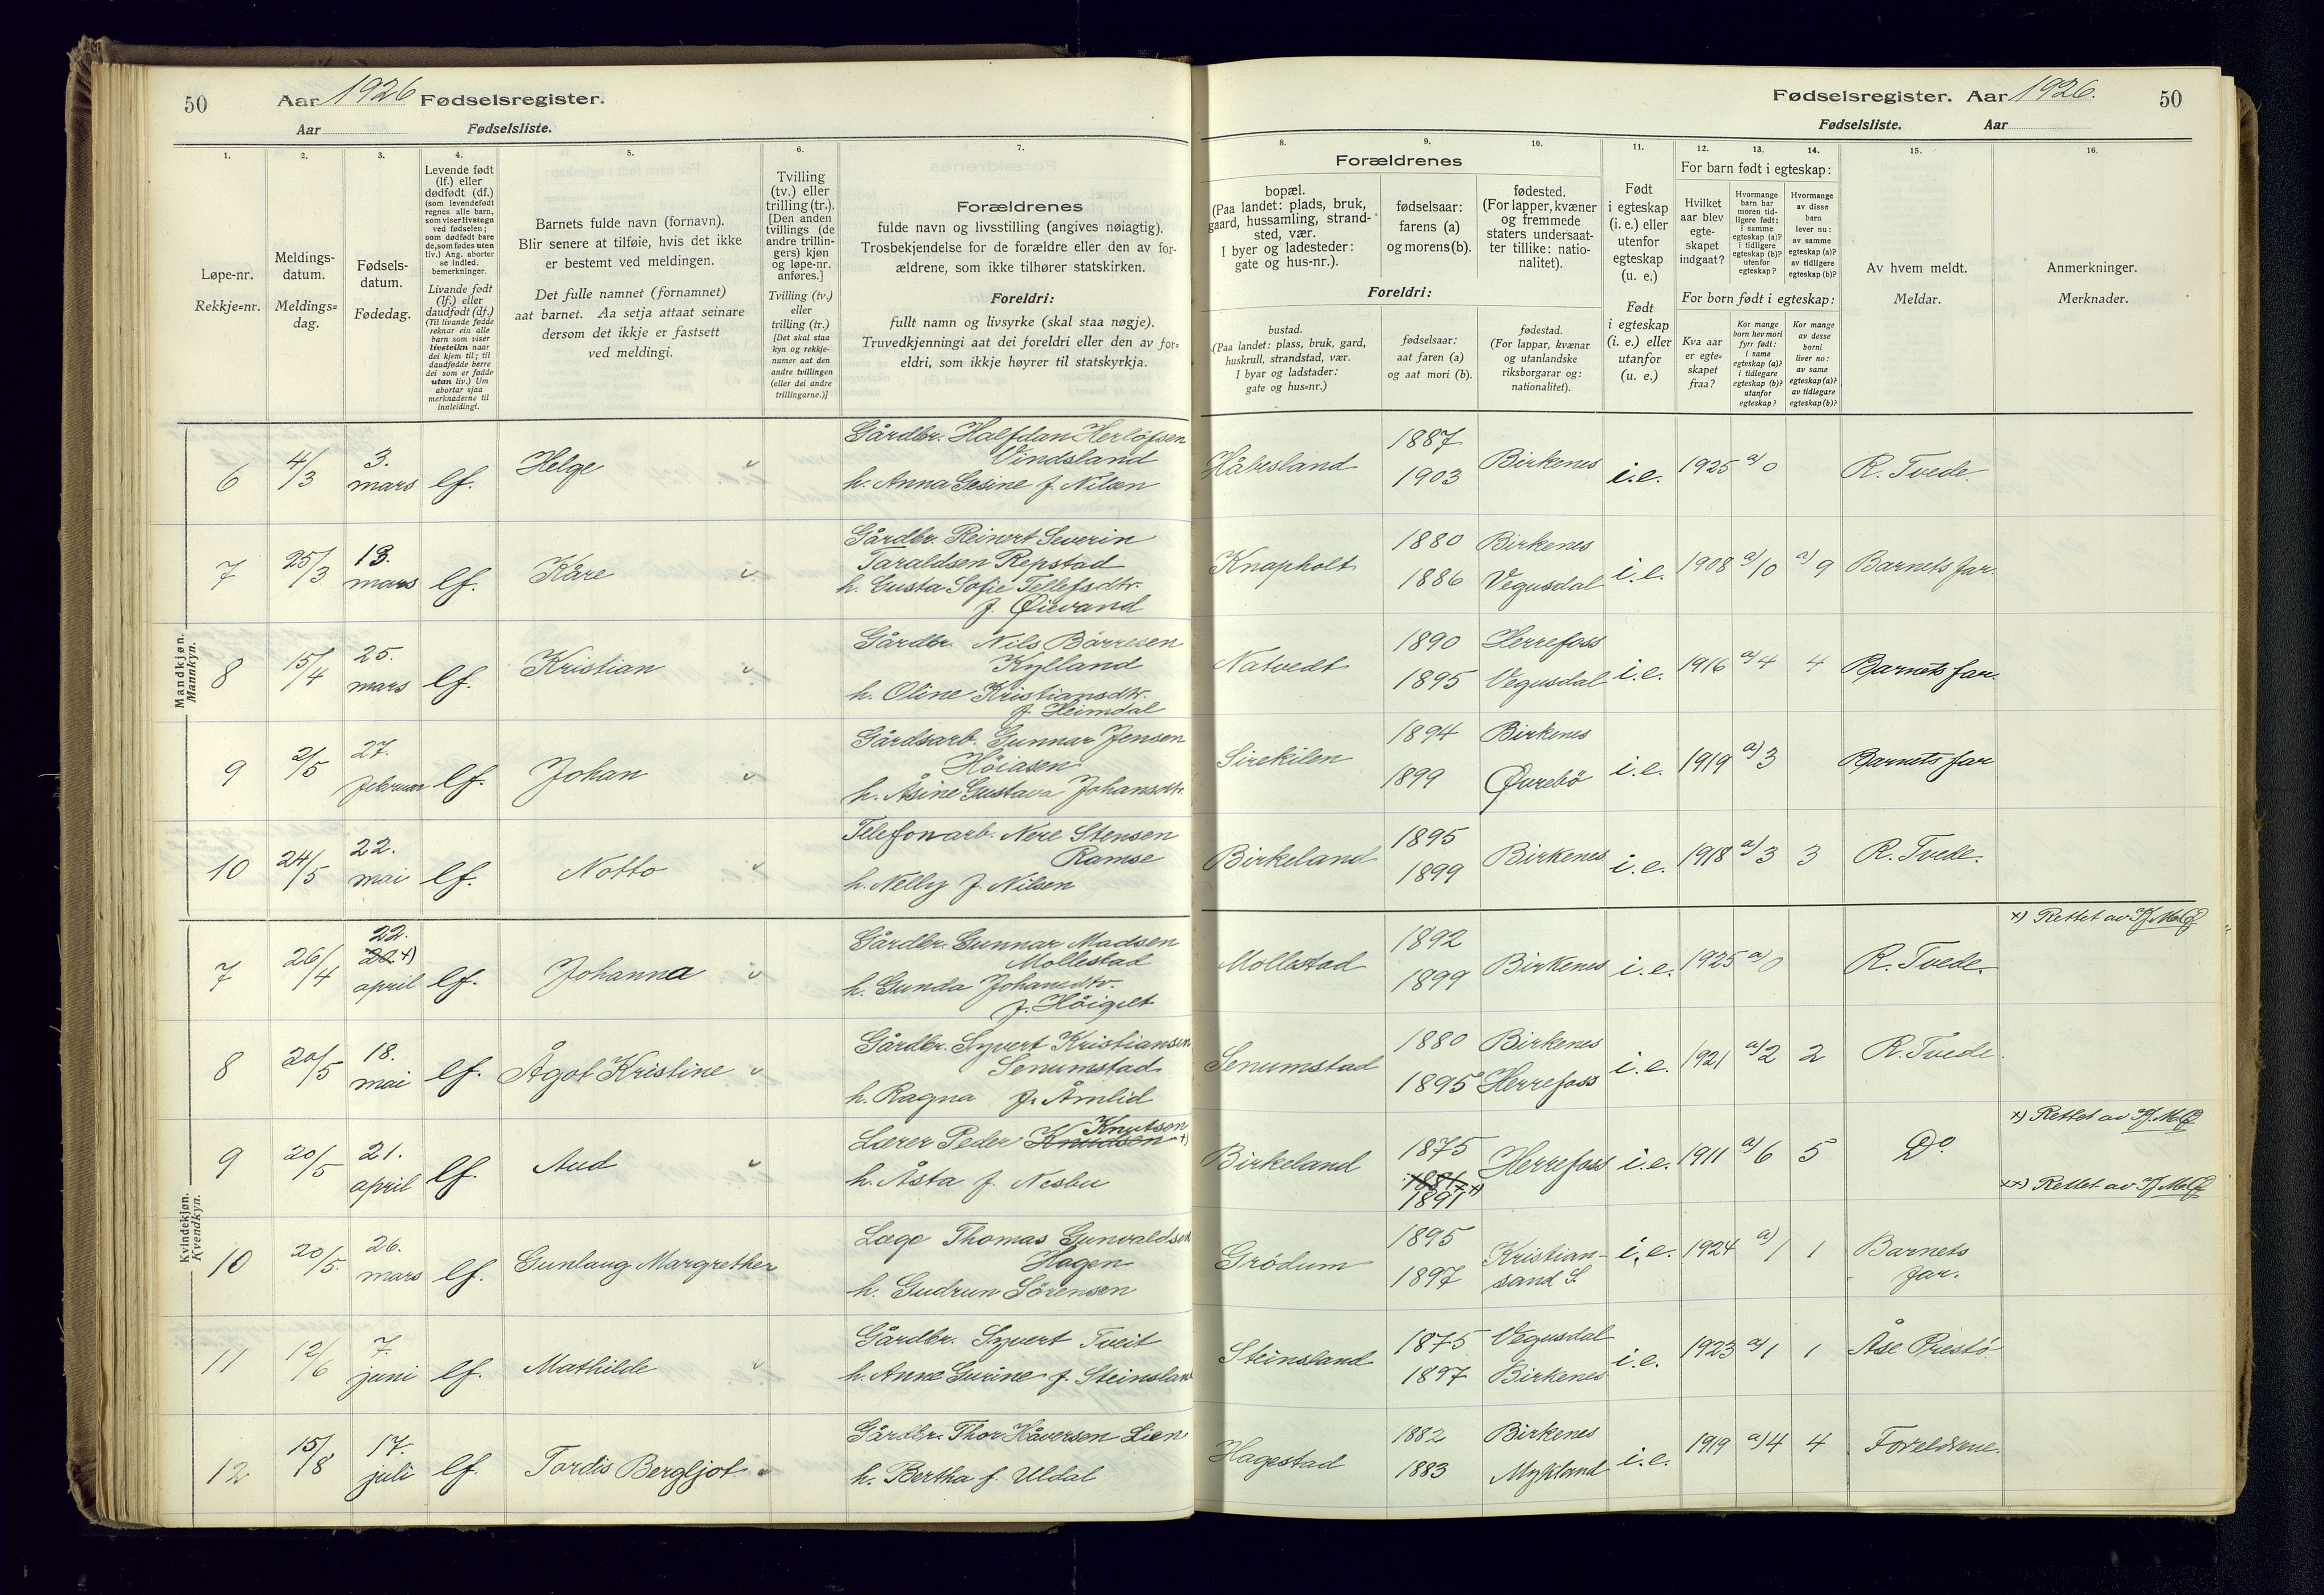 50 Aar 1926 Fødselsregister.
Aar Fødselsliste.
1.
Løpe-nr.
Rekkje=nr.
2.
Meldings-
datum.
Meldings=
dag.
3.
Fødsels-
datum.
Fødedag.
4.
Levende født
(lf.) eller
dødfødt (df.)
(som levendefødt
regnes alle barn,
som viser livstegn
ved fødselen;
som dødfødt bare
de, som fødes uten
liv.) Ang. aborter
se indled.
bemerkninger.
Livande født
(lf.) eller
daudfødt (df.)
(Til livande fødde
reknar ein alle
barn som viser
livsteikn naar
dei kjem til; til
daudfødde berre
dei som er fødde
utan liv.) Um
abortar sjaa
merknaderne til
innleidingi.
5.
Barnets fulde navn (fornavn).
Blir senere at tilføie, hvis det ikke
er bestemt ved meldingen.
Det fulle namnet (fornamnet)
aat barnet. Aa setja attaat seinare
dersom det ikkje er fastsett
ved meldingi.
6.
Tvilling
(tv.) eller
trilling (tr.).
[Den anden
tvillings (de
andre trillin-
gers) kjøn
og løpe-nr.
anføres.]
Tvilling (tv.)
eller
trilling (tr.)
[Det skal staa
kyn og rekkje-
numer aat den
andre tvillingen
(eller dei andre
trillingarne.)]
7.
Forældrenes
fulde navn og livsstilling (angives nøiagtig).
Trosbekjendelse for de forældre eller den av for-
ældrene, som ikke tilhører statskirken.
Foreldri:
fullt namn og livsyrke (skal staa nøgje).
Truvedkjenningi aat dei foreldri eller den av for=
eldri, som ikkje høyrer til statskyrkja.
Mandkjøn.
Mannkyn.
6 4/3 3. mars lf. Helge
Gårdbr. Halfdan Herlofsen
Vindsland
h. Anna Gesine f. Nilsen
7 25/3 13. mars lf. Kåre
Gårdbr. Reinert Severin
Taraldsen Repstad
h. Gusta Sofie Tellefsdtr.
f. Øievand
8 15/4 25. mars lf. Kristian
Gårdbr. Nils Börresen
Kylland
h. Oline Kristiansdtr.
f. Heimdal
9 2/5 27. februar lf. Johan
Gårdsarb. Gunnar Jensen
Höiasen
h. Åsine Gustava Johansdtr.
10 24/5 22. mai lf. Notto
Telefonarb. Nere Stensen
Ramse
h. Nelly f. Nilsen
Kvindekjøn.
Kvendkyn.
7 26/4 22. 20. x) april lf. Johanna
Gårdbr. Gunnar Madsen
Mollestad
h. Gunda Johansdtr.
f. Höigilt
8 20/5 18. mai lf. Ågot Kristine
Gårdbr. Syvert Kristiansen
Senumstad
h. Ragna f. Åmlid
9 20/5 21. april lf. Aud
Knutson
Lærer Peder Knudsen x)
h. Åsta f. Nesbu
10 20/5. 26. mars lf. Gunlaug Margrethe
Læge Thomas Gunvaldsen
Hagen
h. Gudrun Sörensen
11 12/6 7. juni lf. Mathilde
Gårdbr. Syvert Tveit
h. Anne Gurine f. Steinsland
12 15/8 17. juli lf. Tordis Bergljot
Gårdbr. Thor Håverson Lien
h. Bertha f. Uldal
Fødselsregister. Aar 1926. 50
Fødselsliste. Aar
8.
Forældrenes
bopæl.
(Paa landet: plads, bruk,
gaard, hussamling, strand-
sted, vær.
I byer og ladesteder:
gate og hus-nr.).
Foreldri:
bustad.
(Paa landet: plass, bruk, gard,
huskrull, strandstad, vær.
I byar og ladstader:
gate og hus=nr.)
9.
fødselsaar:
farens (a)
og morens (b).
fødselsaar:
aat faren (a)
og aat mori (b).
10.
fødested.
(For lapper, kvæner
og fremmede
staters undersaat-
ter tillike: natio-
nalitet).
fødestad.
(For lappar, kvænar
og utanlandske
riksborgarar og:
nationalitet).
11.
Født
i egteskap
(i. e.) eller
utenfor
egteskap
(u. e.)
Født
i egteskap
(i. e.) eller
utanfor
egteskap
(u. e.)
12. 13. 14.
For barn født i egteskap:
Hvilket
aar blev
egte-
skapet
indgaat?
Hvormange
barn har
moren tid-
ligere født:
i samme
egteskap (a)?
i tidligere
egteskap (b)?
utenfor
egteskap?
Hvormange
av disse
barn
lever nu:
av samme
egteskap (a)?
av tidligere
egteskap (b)?
For born født i egteskap:
Kva aar
er egte=
skapet
fraa?
Kor mange
born hev mori
fyrr født:
i same
egteskap (a)?
i tidlegare
egteskap (b)?
utanfor
egteskap?
Kor mange
av desse
borni
liver no:
av same
egteskap (a)?
av tidlegare
egteskap (b)?
15.
Av hvem meldt.
Meldar.
16.
Anmerkninger.
Merknader.
Håbesland 1887 1903 Birkenes i.e. 1925 a) 0 R. Tvede.
Knapholt 1880 Birkenes
1886 Vegusdal i.e. 1908 a) 10 a) 9 Barnets far.
Natvedt 1890 Herrefoss
1895 Vegusdal i.e. 1916 a) 4 4 Barnets far.
Sirekilen 1894 Birkenes
1899 Øvrebö i.e. 1919 a) 3 Barnets far
Birkeland 1895 1899 Birkenes i.e. 1918 a) 3 3 R. Tvede.
x) Rettet av
Mollestad 1892 1899 Birkenes i.e. 1925 a) 0 R. Tvede.
Senumstad 1880 Birkenes
1895 Herrefoss i.e. 1921 a) 2 2 R. Tvede.
x) Rettet av
Birkeland 1875 Herrefoss i.e. 1911 a) 6 5 Do.
1891
xx) Rettet av
Grödum 1895 1897 Kristian-
sand S. i.e. 1924 a) 1 1 Barnets
far.
Steinsland 1875 Vegusdal
1897 Birkenes i.e. 1923 a) 1 1 Åse Prestö
Hagestad 1882 Birkenes
1883 Mykland i.e. 1919 a) 4 4 Foreldrene.